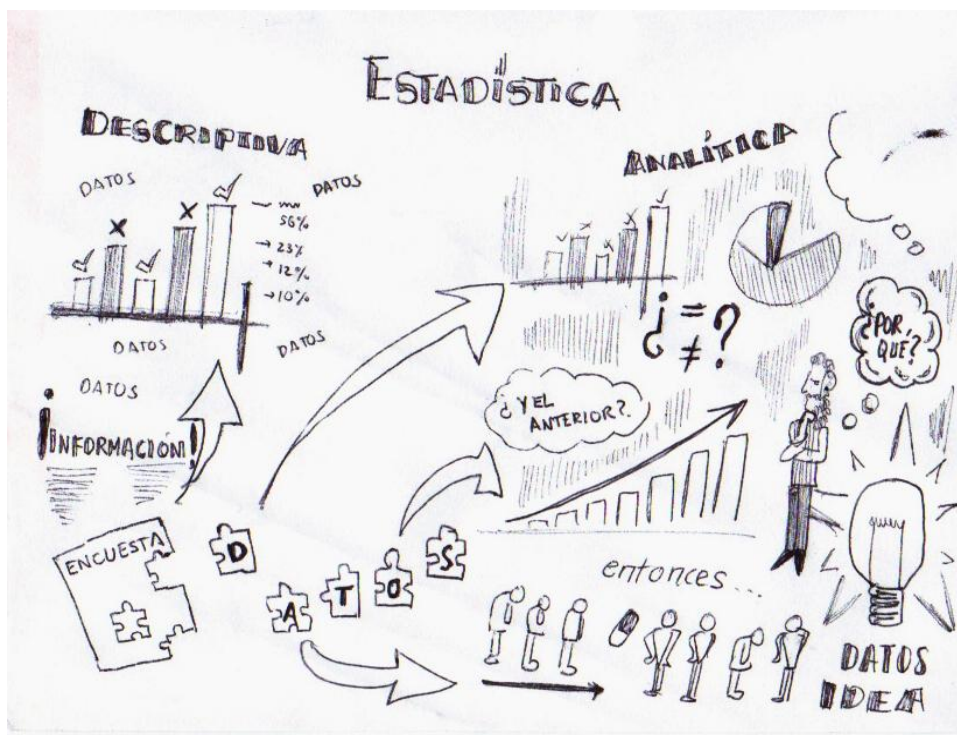 ESTADÍSTICA
DESCRIPTIVA
DATOS
DATOS
56%
23%
12%
10%
DATOS
DATOS
DATOS
¡INFORMACIÓN!
ENCUESTA
D
A
T
O
S
ANALÍTICA
¿ = ≠ ?
¿POR
QUÉ?
¿Y EL
ANTERIOR?
entonces...
DATOS
IDEA